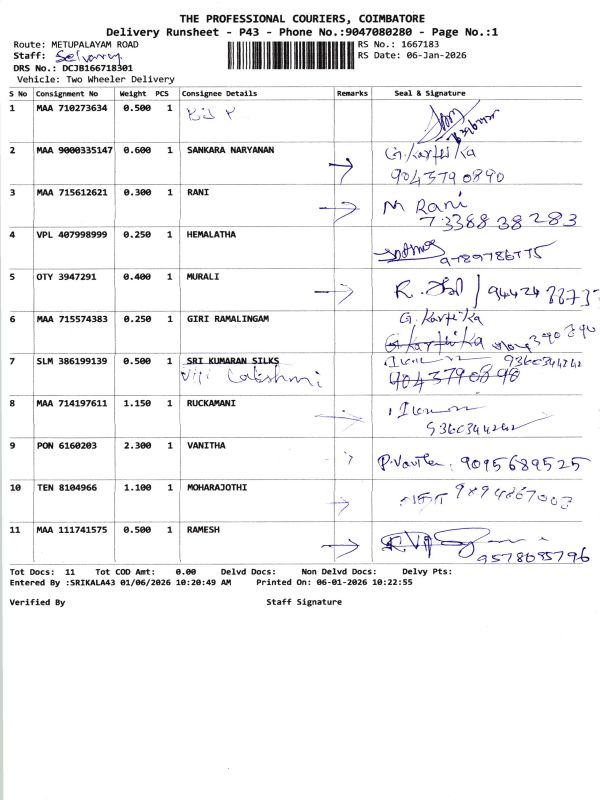 THE PROFESSIONAL COURIERS, COIMBATORE
Delivery Runsheet - P43 - Phone No.:9047080280 - Page No.:1
Route: METUPALAYAM ROAD RS No.: 1667183
Staff: RS Date: 06-Jan-2026
DRS No.: DCJB166718301
Vehicle: Two Wheeler Delivery
S No Consignment No Weight PCS Consignee Details Remarks Seal & Signature
1 MAA 710273634 0.500 1
2 MAA 9000335147 0.600 1 SANKARA NARYANAN G.Karthika
9043790890
3 MAA 715612621 0.300 1 RANI M Rani
7338838283
4 VPL 407998999 0.250 1 HEMALATHA
9789786775
5 OTY 3947291 0.400 1 MURALI
6 MAA 715574383 0.250 1 GIRI RAMALINGAM G.Kartika
G.Karthika
7 SLM 386199139 0.500 1 SRI KUMARAN SILKS 9360344242
Viji Lakshmi 9043790890
8 MAA 714197611 1.150 1 RUCKAMANI
9360344242
9 PON 6160203 2.300 1 VANITHA 9095689525
10 TEN 8104966 1.100 1 MOHARAJOTHI 9894867003
11 MAA 111741575 0.500 1 RAMESH
9578085796
Tot Docs: 11 Tot COD Amt: 0.00 Delvd Docs: Non Delvd Docs: Delvy Pts:
Entered By :SRIKALA43 01/06/2026 10:20:49 AM Printed On: 06-01-2026 10:22:55
Verified By Staff Signature